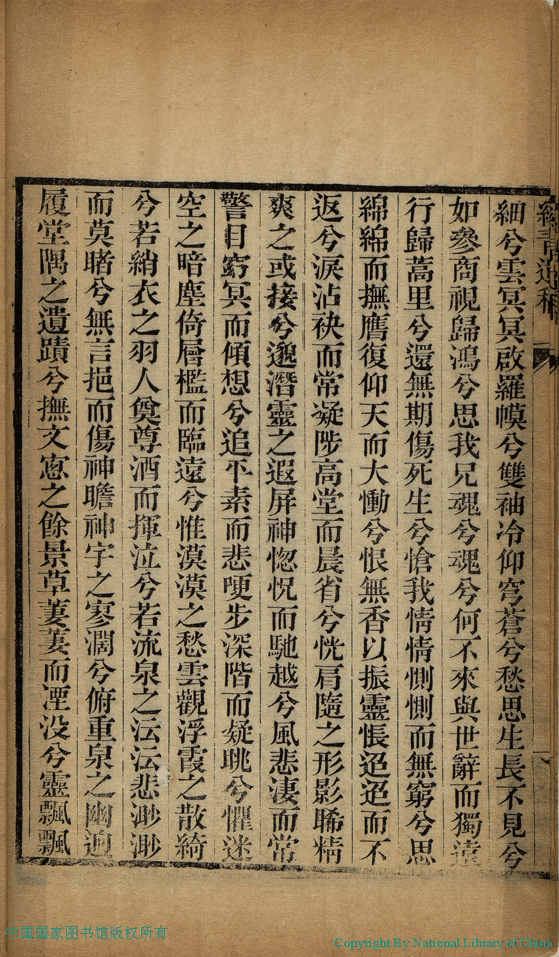 細兮雲冥冥啟羅幙兮雙袖冷仰穹蒼兮愁思生長不見兮
如參商視歸鴻兮思我兄魂兮魂兮何不來與世辭而獨遠
行歸蒿里兮還無期傷死生兮愴我情情惻惻而無窮兮思
綿綿而撫膺復仰天而大慟兮恨無香以振靈悵迢迢而不
返兮淚沾袂而常凝陟高堂而晨省兮恍肩隨之形影睎精
爽之或接兮邈潛靈之遐屏神惚怳而馳越兮風悲淒而常
警目窮冥而傾想兮追平素而悲哽步深階而疑眺兮懼迷
空之暗塵倚層檻而臨遠兮惟漠漠之愁雲觀浮霞之散綺
兮若綃衣之羽人奠尊酒而揮泣兮若流泉之沄沄悲渺渺
而莫睹兮無言挹而傷神瞻神宇之寥濶兮俯重泉之幽逈
履堂隅之遺蹟兮撫文窻之餘景草萋萋而湮没兮靈飄飄
中国国家图书馆版权所有
Copyright By National Library of China